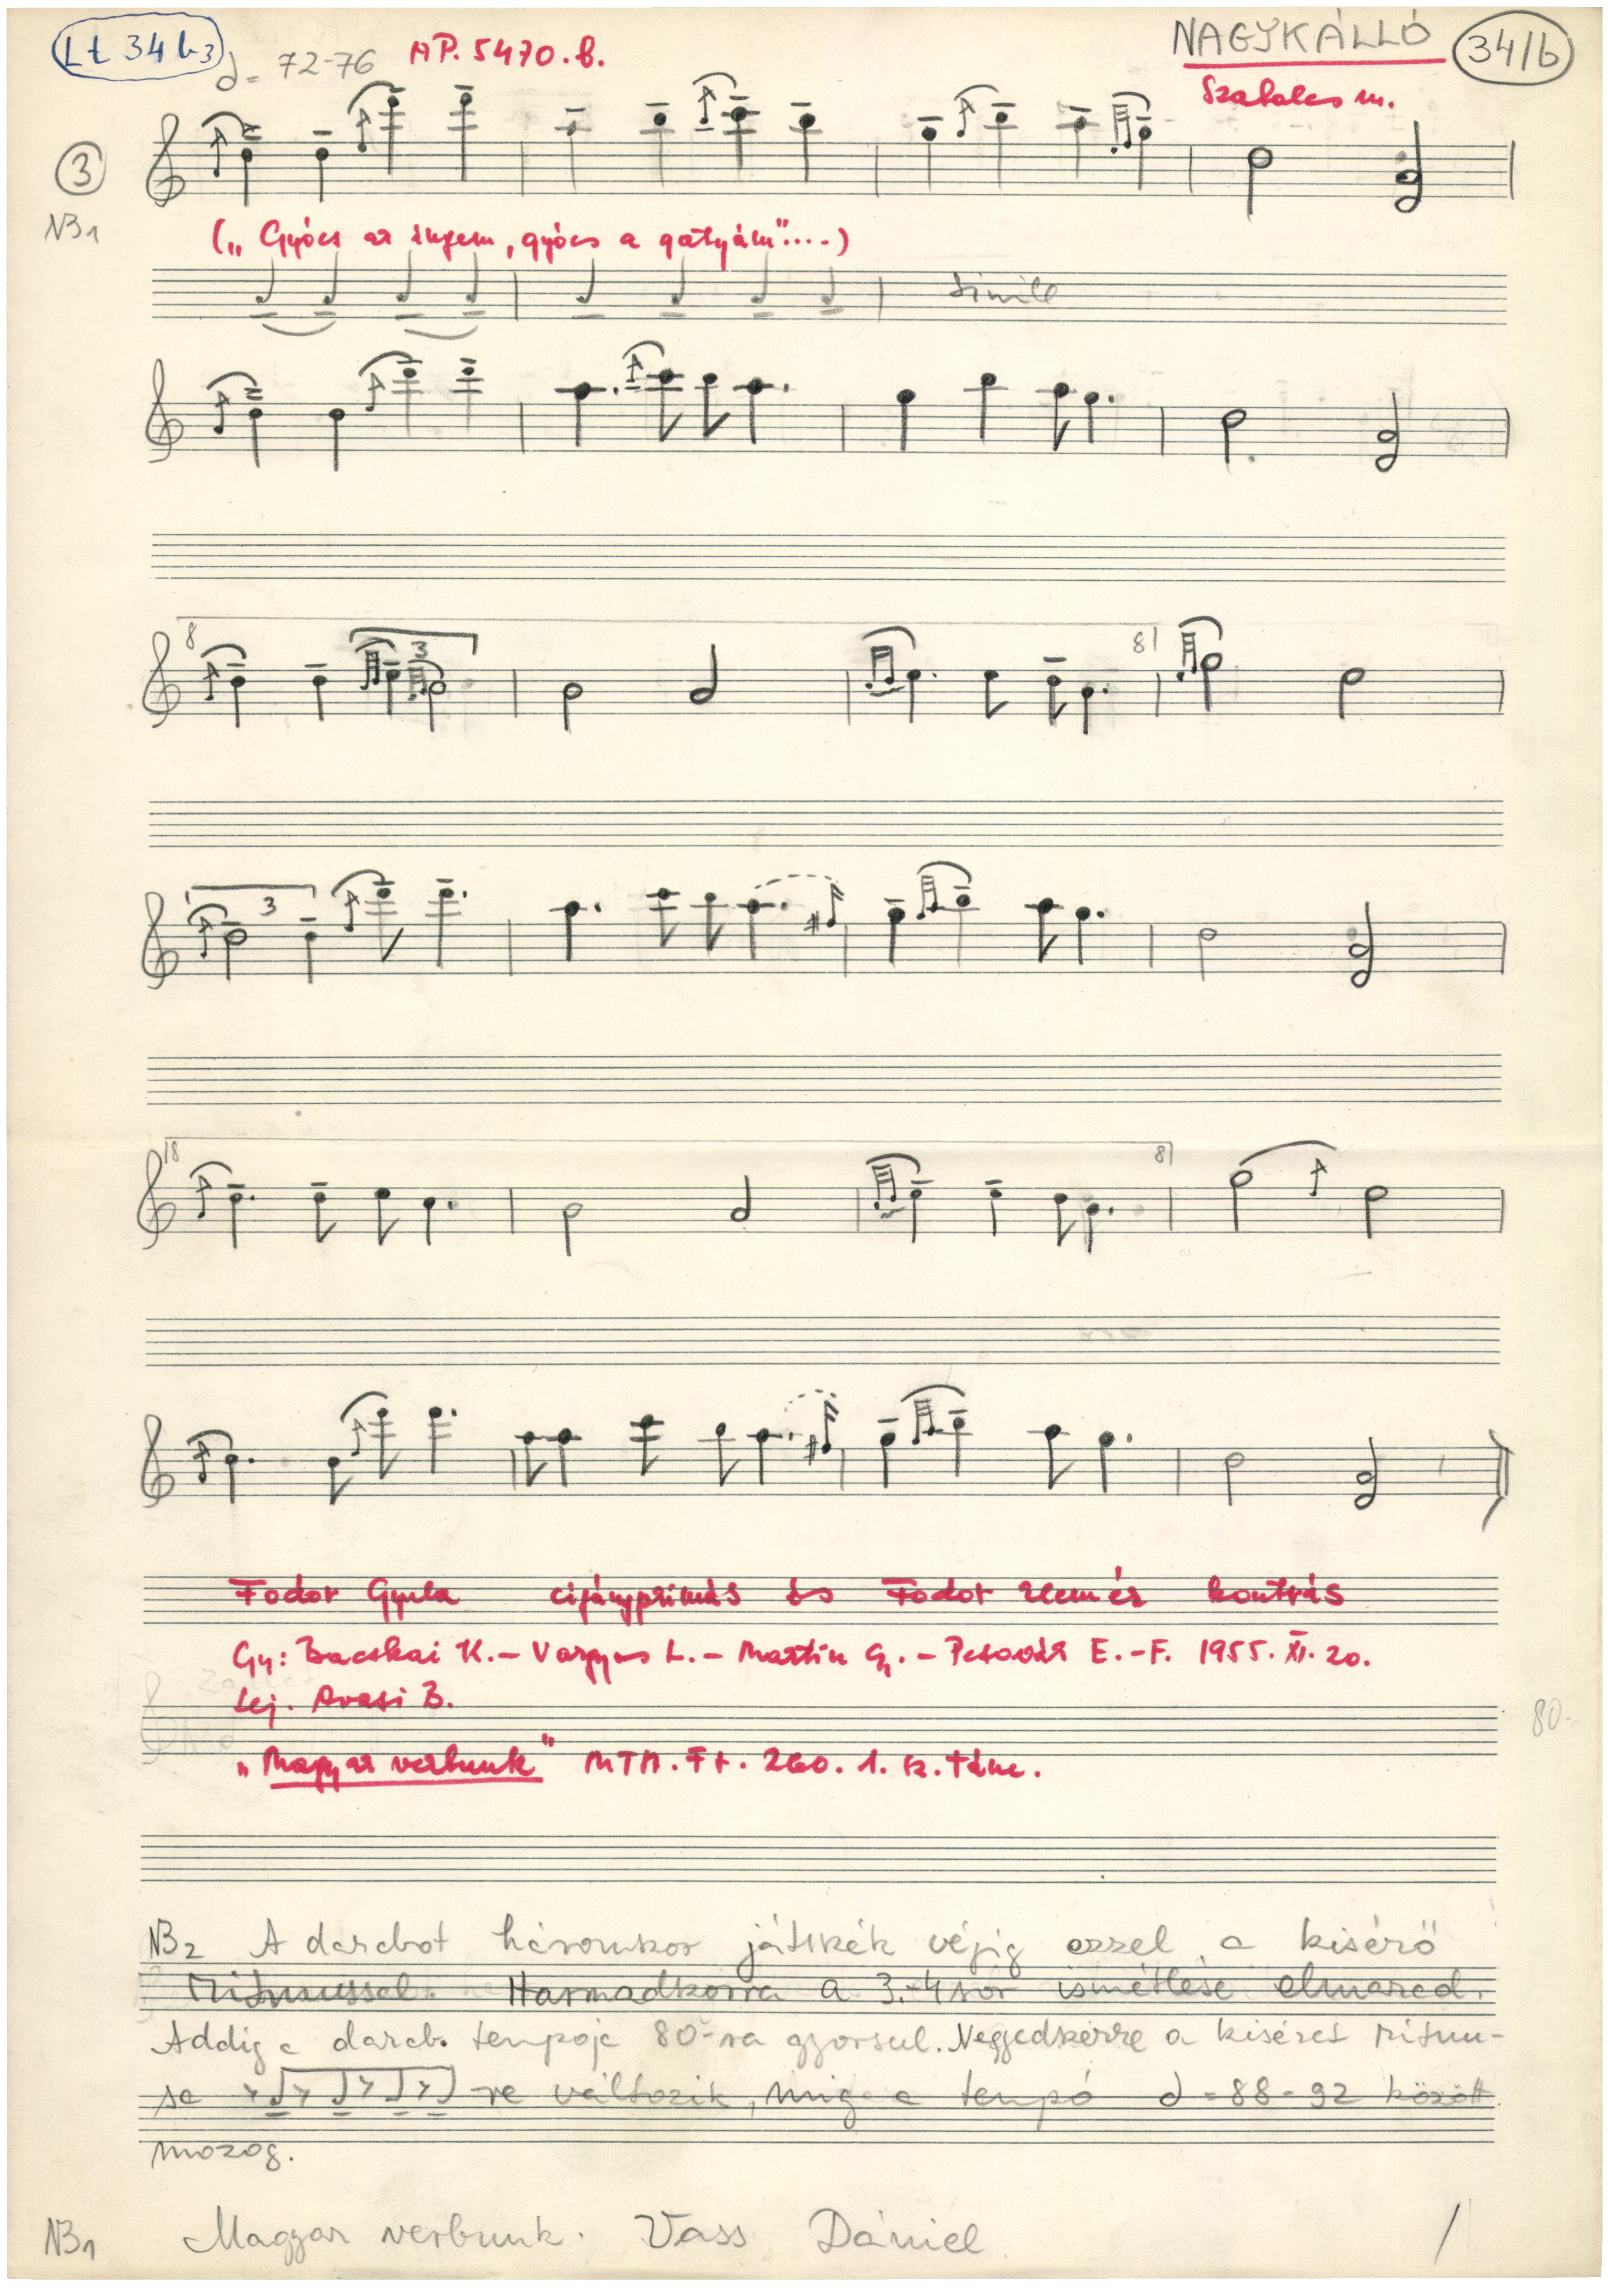 Lt 34 b3
♩= 72-76 AP. 5470. b. NAGYKÁLLÓ 34/b
Szabolcs m.
3
NB1
(„Gyócs az ingem, gyócs a gatyám"....)
simile
8 3 8
3
8 8
Fodor Gyula cigányprímás és Fodor Elemér kontrás
Gy: Bacskai K. – Vargyas L. – Martin Gy. – Pesovár E.-F. 1955. XI. 20.
Lej. Avasi B.
80-
„Magyar verbunk" MTA. Ft. 260. 1. sz. tánc.
NB2 A darabot háromszor játszák végig ezzel a kisérő
ritmussal. Harmadszorra a 3.-4 sor ismétlése elmarad.
Addig a darab tempója 80-ra gyorsul. Negyedszerre a kiséret ritmu-
sa -re változik, mig a tempó ♩=88-92 között
mozog.
NB1 Magyar verbunk. Vass Dániel